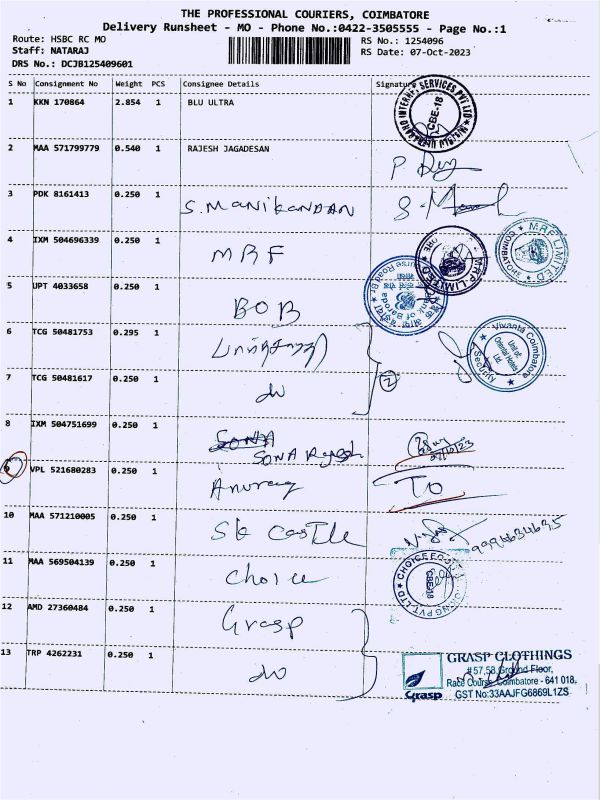 THE PROFESSIONAL COURIERS, COIMBATORE
Delivery Runsheet - MO - Phone No.:0422-3505555 - Page No.:1
Route: HSBC RC MO
Staff: NATARAJ
DRS No.: DCJB125409601
RS No.: 1254096
RS Date: 07-Oct-2023
S No Consignment No Weight PCS Consignee Details Signature
1 KKN 170864 2.854 1 BLU ULTRA
SERVICES PVT LTD
CBE-18
2 MAA 571799779 0.540 1 RAJESH JAGADESAN
3 PDK 8161413 0.250 1 S.MANIKANDAN
4 IXM 504696339 0.250 1 MRF
MRF LIMITED
MRF LIMITED
COIMBATORE
5 UPT 4033658 0.250 1 BOB
Bank of Baroda
6 TCG 50481753 0.295 1
Vivanta Coimbatore
Unit of:
Oriental Hotels
Ltd.
Security
7 TCG 50481617 0.250 1 do
2
8 IXM 504751699 0.250 1 SONA
SONA Rajesh
9 VPL 521680283 0.250 1 Anurag TO
10 MAA 571210005 0.250 1 Sk Castle
11 MAA 569504139 0.250 1 Choice
CBE-18
12 AMD 27360484 0.250 1 Grasp
13 TRP 4262231 0.250 1 do
Grasp
GRASP CLOTHINGS
#57,58, Ground Floor,
Race Course, Coimbatore - 641 018.
GST No:33AAJFG6869L1ZS